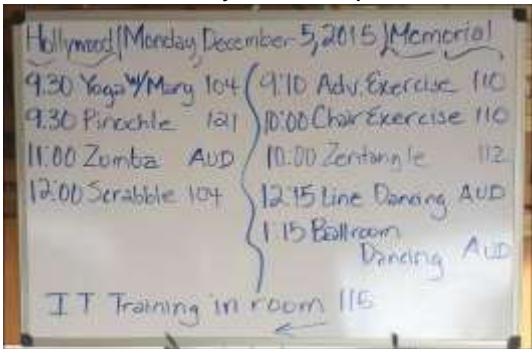 Hollywood | Monday, December 5, 2015 | Memorial
9:30 Yoga w/Mary 104
9:30 Pinochle 121
11:00 Zumba AUD
12:00 Scrabble 104
9:10 Adv. Exercise 110
10:00 Chair Exercise 110
10:00 Zentangle 112
12:15 Line Dancing AUD
1:15 Ballroom
Dancing AUD
IT Training in room 115